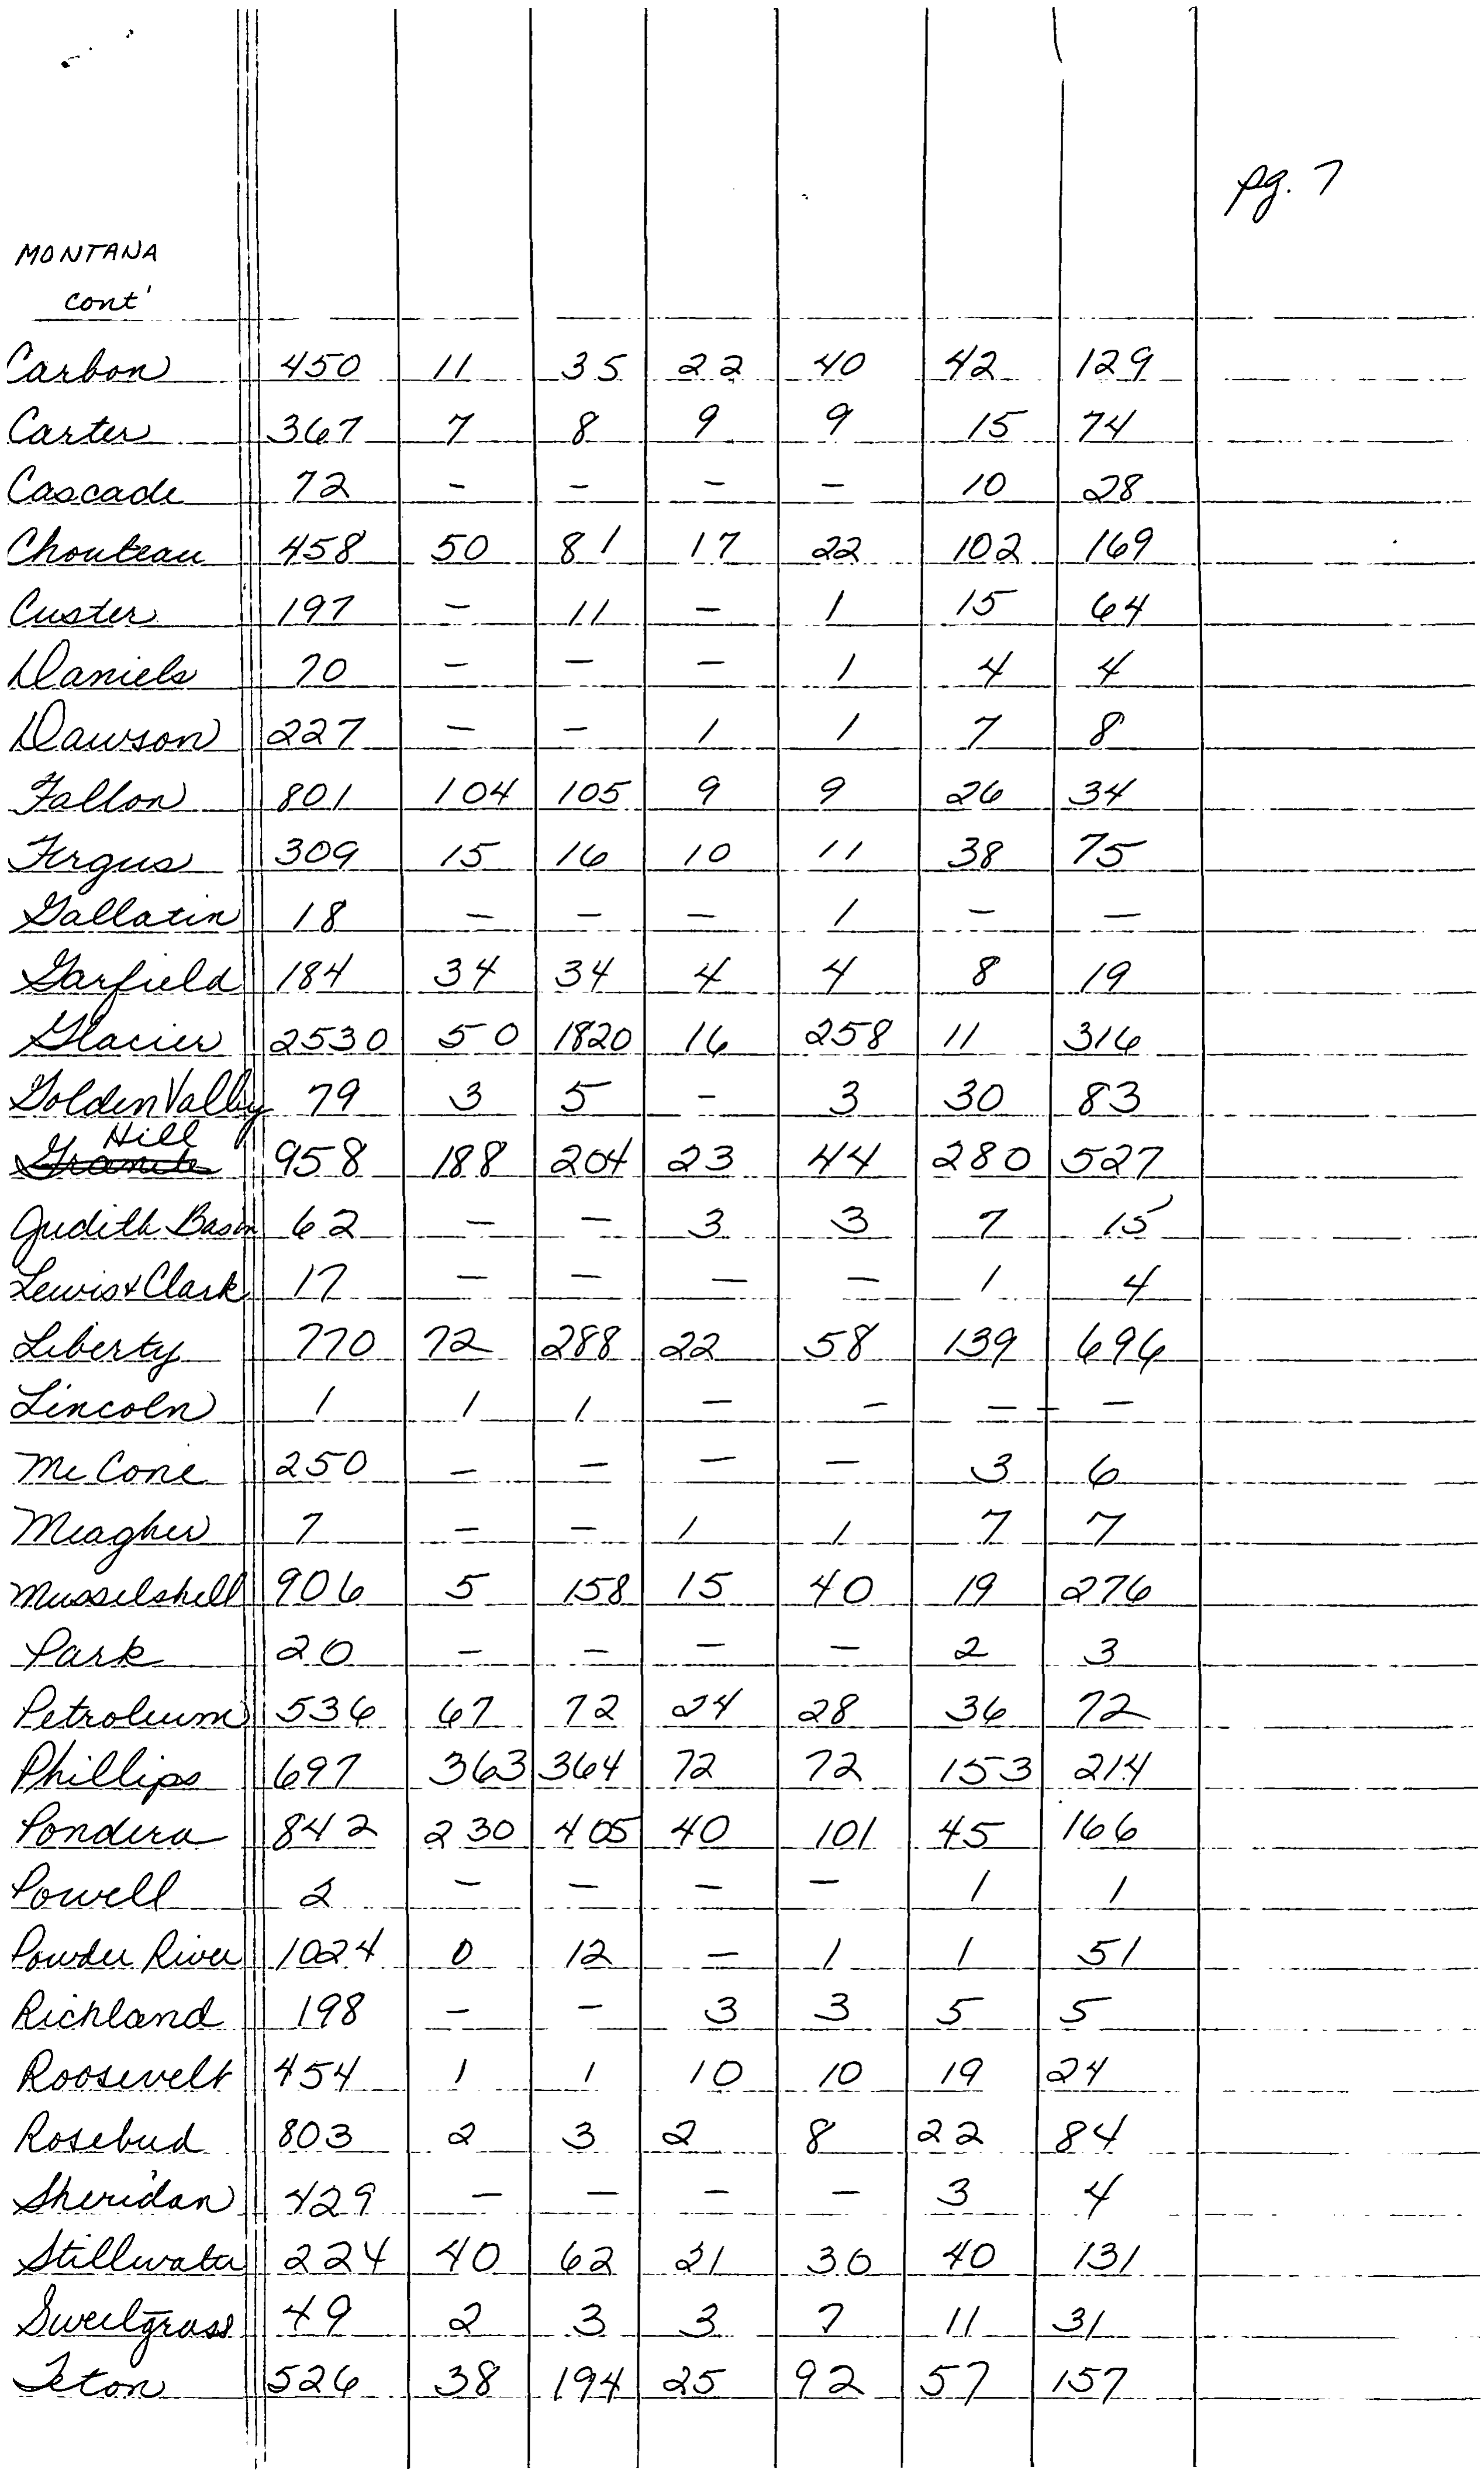 pg. 7
MONTANA
cont'
Carbon 450 11 35 22 40 42 129
Carter 367 7 8 9 9 15 74
Cascade 72 - - - - 10 28
Chouteau 458 50 81 17 22 102 169
Custer 197 - 11 - 1 15 64
Daniels 70 - - - 1 4 4
Dawson 227 - - 1 1 7 8
Fallon 801 104 105 9 9 26 34
Fergus 309 15 16 10 11 38 75
Gallatin 18 - - - 1 - -
Garfield 184 34 34 4 4 8 19
Glacier 2530 50 1820 16 258 11 316
Golden Valley 79 3 5 - 3 30 83
Hill
Granite 958 188 204 23 44 280 527
Judith Basin 62 - - 3 3 7 15
Lewis & Clark 17 - - - - 1 4
Liberty 770 72 288 22 58 139 696
Lincoln 1 1 1 - - - -
McCone 250 - - - - 3 6
Meagher 7 - - 1 1 7 7
Musselshell 906 5 158 15 40 19 276
Park 20 - - - - 2 3
Petroleum 536 67 72 24 28 36 72
Phillips 697 363 364 72 72 153 214
Pondera 842 230 405 40 101 45 166
Powell 2 - - - - 1 1
Powder River 1024 0 12 - 1 1 51
Richland 198 - - 3 3 5 5
Roosevelt 454 1 1 10 10 19 24
Rosebud 803 2 3 2 8 22 84
Sheridan 429 - - - - 3 4
Stillwater 224 40 62 21 30 40 131
Sweetgrass 49 2 3 3 7 11 31
Teton 526 38 194 25 92 57 157